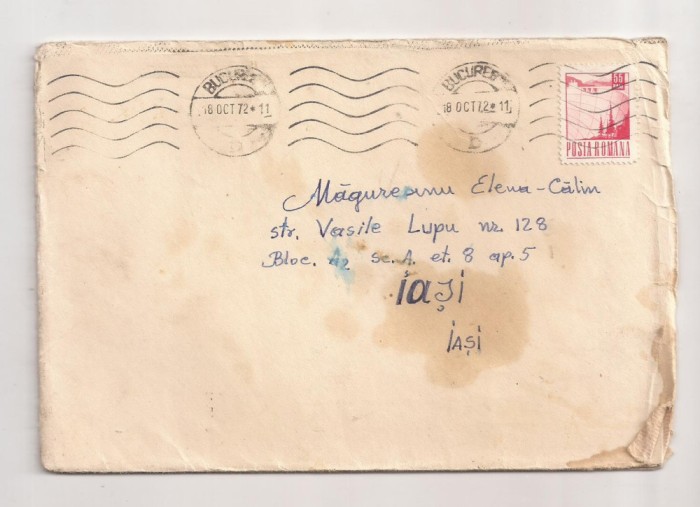 BUCUREȘTI
18 OCT 72 * 11
D
BUCUREȘTI
18 OCT 72 * 11
D
55
POSTA ROMANA
Măguresnu Elena-Călin
str. Vasile Lupu nr. 128
Bloc. sc. A. et. 8 ap. 5
iași
Iași